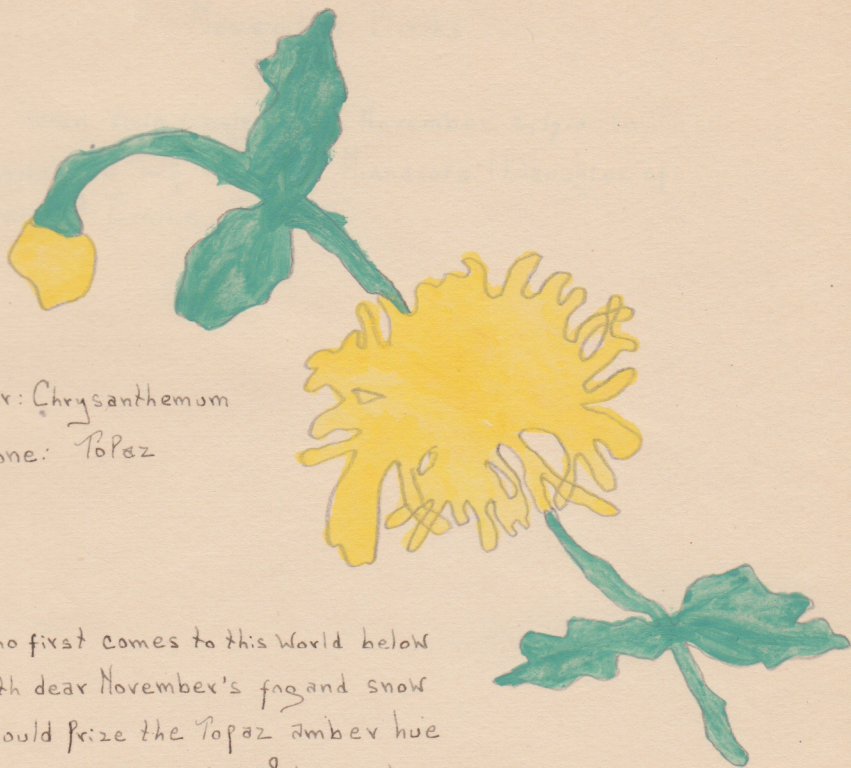 r: Chrysanthemum
one: Topaz
no first comes to this World below
th dear November's fog and snow
ould Prize the Topaz amber hue